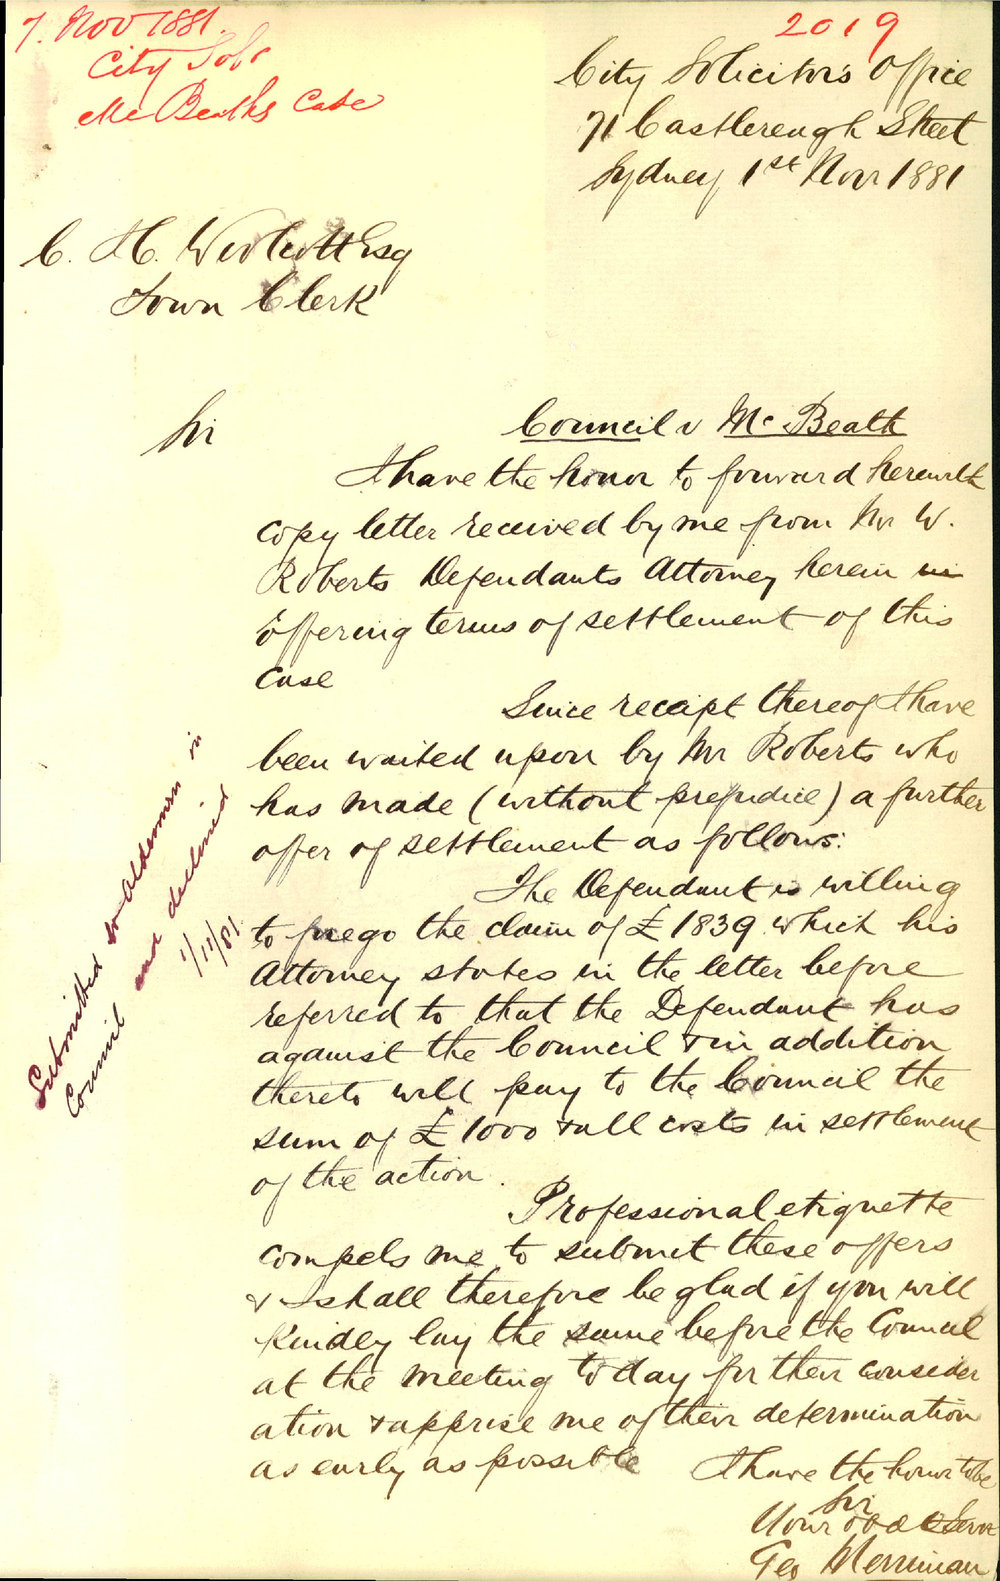 7. Nov 1881.
City Solr
McBeaths Case
2019
City Solicitor's Office
71 Castlereagh Street
Sydney 1st Novr 1881
C. H. Woolcott Esq
Town Clerk
Sir
Council v McBeath
I have the honor to forward herewith
copy letter received by me from Mr W.
Roberts Defendants Attorney herein in
offering terms of settlement of this
case
Since receipt thereof I have
been waited upon by Mr Roberts who
has made (without prejudice) a further
offer of settlement as follows:
The Defendant is willing
to forego the claim of £1839 which his
Attorney states in the letter before
referred to that the Defendant has
against the Council & in addition
thereto will pay to the Council the
sum of £1000 & all costs in settlement
of the action.
Professional etiquette
compels me to submit these offers
& I shall therefore be glad if you will
kindly lay the same before the Council
at the meeting to day for their consider
ation & apprise me of their determination
as early as possible
I have the honor to be
Sir
Your obd Serv
Geo Merriman
Submitted to Aldermen in
Council and declined
1/11/81